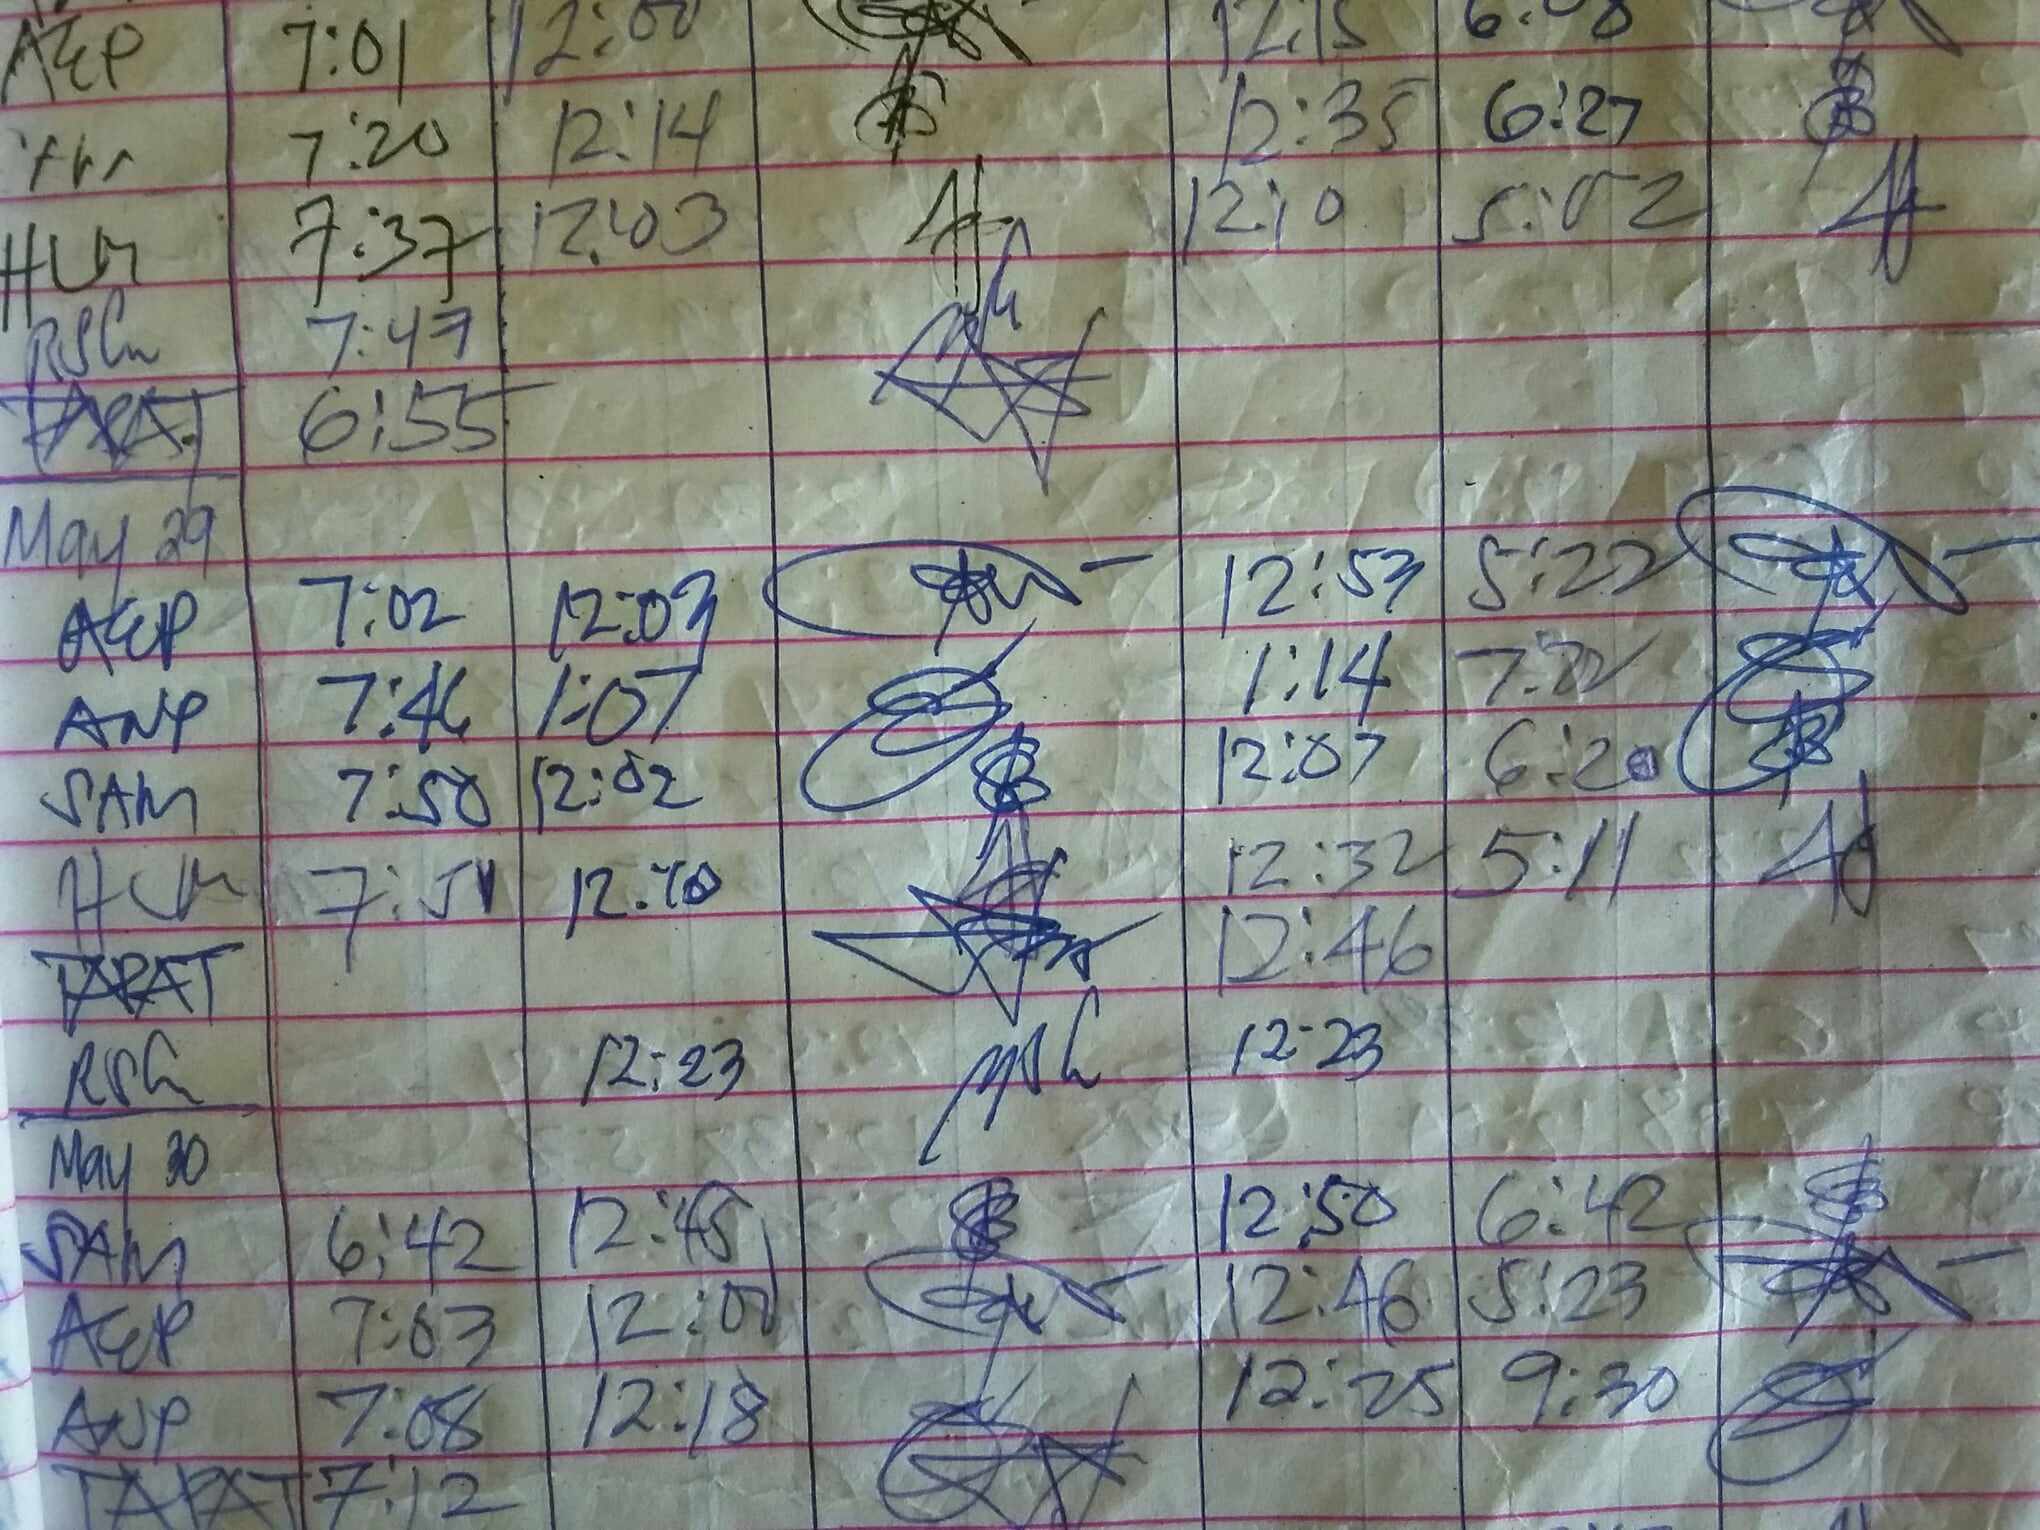 AEP 7:01 12:00 12:15 6:08
7:20 12:14 12:35 6:27
HUM 7:37 12:03 12:10 5:02
RSG 7:47
TAPAT 6:55
May 29
AEP 7:02 12:03 12:53 5:22
ANP 7:46 1:07 1:14
SAM 7:50 12:02 12:07 6:20
HUM 7:51 12:32 5:11
TAPAT 12:46
RSG 12:23 12:23
May 30
SAM 6:42 12:45 12:50 6:42
AEP 7:03 12:00 12:46 5:23
ANP 7:08 12:18 12:25 9:30
TAPAT 7:12